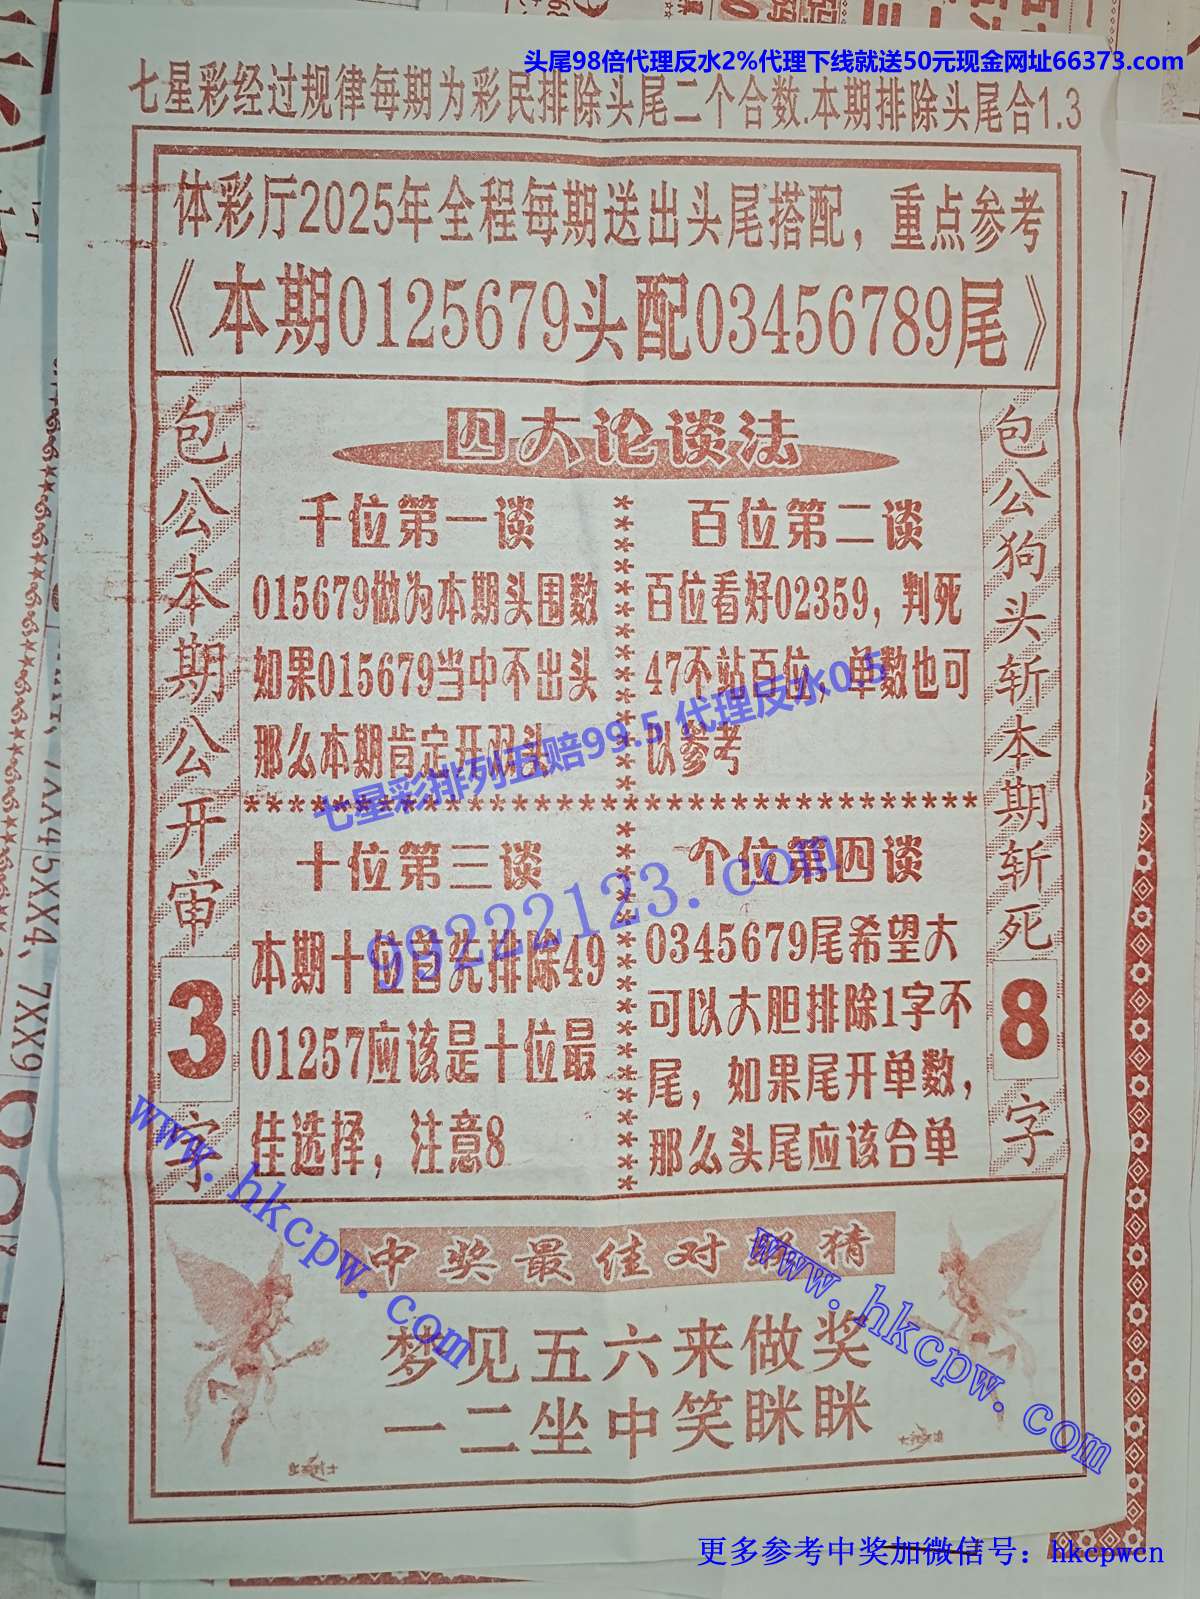 头尾98倍代理反水2%代理下线就送50元现金网址66373.com
七星彩经过规律每期为彩民排除头尾二个合数.本期排除头尾合1.3
体彩厅2025年全程每期送出头尾搭配，重点参考
《本期0125679头配03456789尾》
包公本期公开审3字
四大论谈法
千位第一谈
015679做为本期头围数
如果015679当中不出头
那么本期肯定开双头
百位第二谈
百位看好02359，判死
47不站百位，单数也可
以参考
七星彩排列五赔99.5 代理反水0.5
十位第三谈
本期十位首先排除49
01257应该是十位最
佳选择，注意8
99222123.com
个位第四谈
0345679尾希望大
可以大胆排除1字不
尾，如果尾开单数，
那么头尾应该合单
包公狗头斩本期斩死8字
www.hkcpw.com
www.hkcpw.com
中奖最佳对 猜
梦见五六来做奖
一二坐中笑眯眯
更多参考中奖加微信号：hkcpwcn